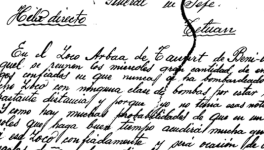 General en Jefe.
Hilo directo
Tetuan
En el Zoco Arbaa de Taurirt de Beni-
quel se reunen los miercoles gran cantidad, de en
gos confiados en que nunca se ha bombardeado
cho Zoco con ninguna clase de bombas por estar
bastante distancia y porque yo no tenia esas noti
Y como hay muchas probabilidades de que en un
coles que haga buen tiempo acudirá mucha que
a ese Zoco confiadamente y será ocasion de